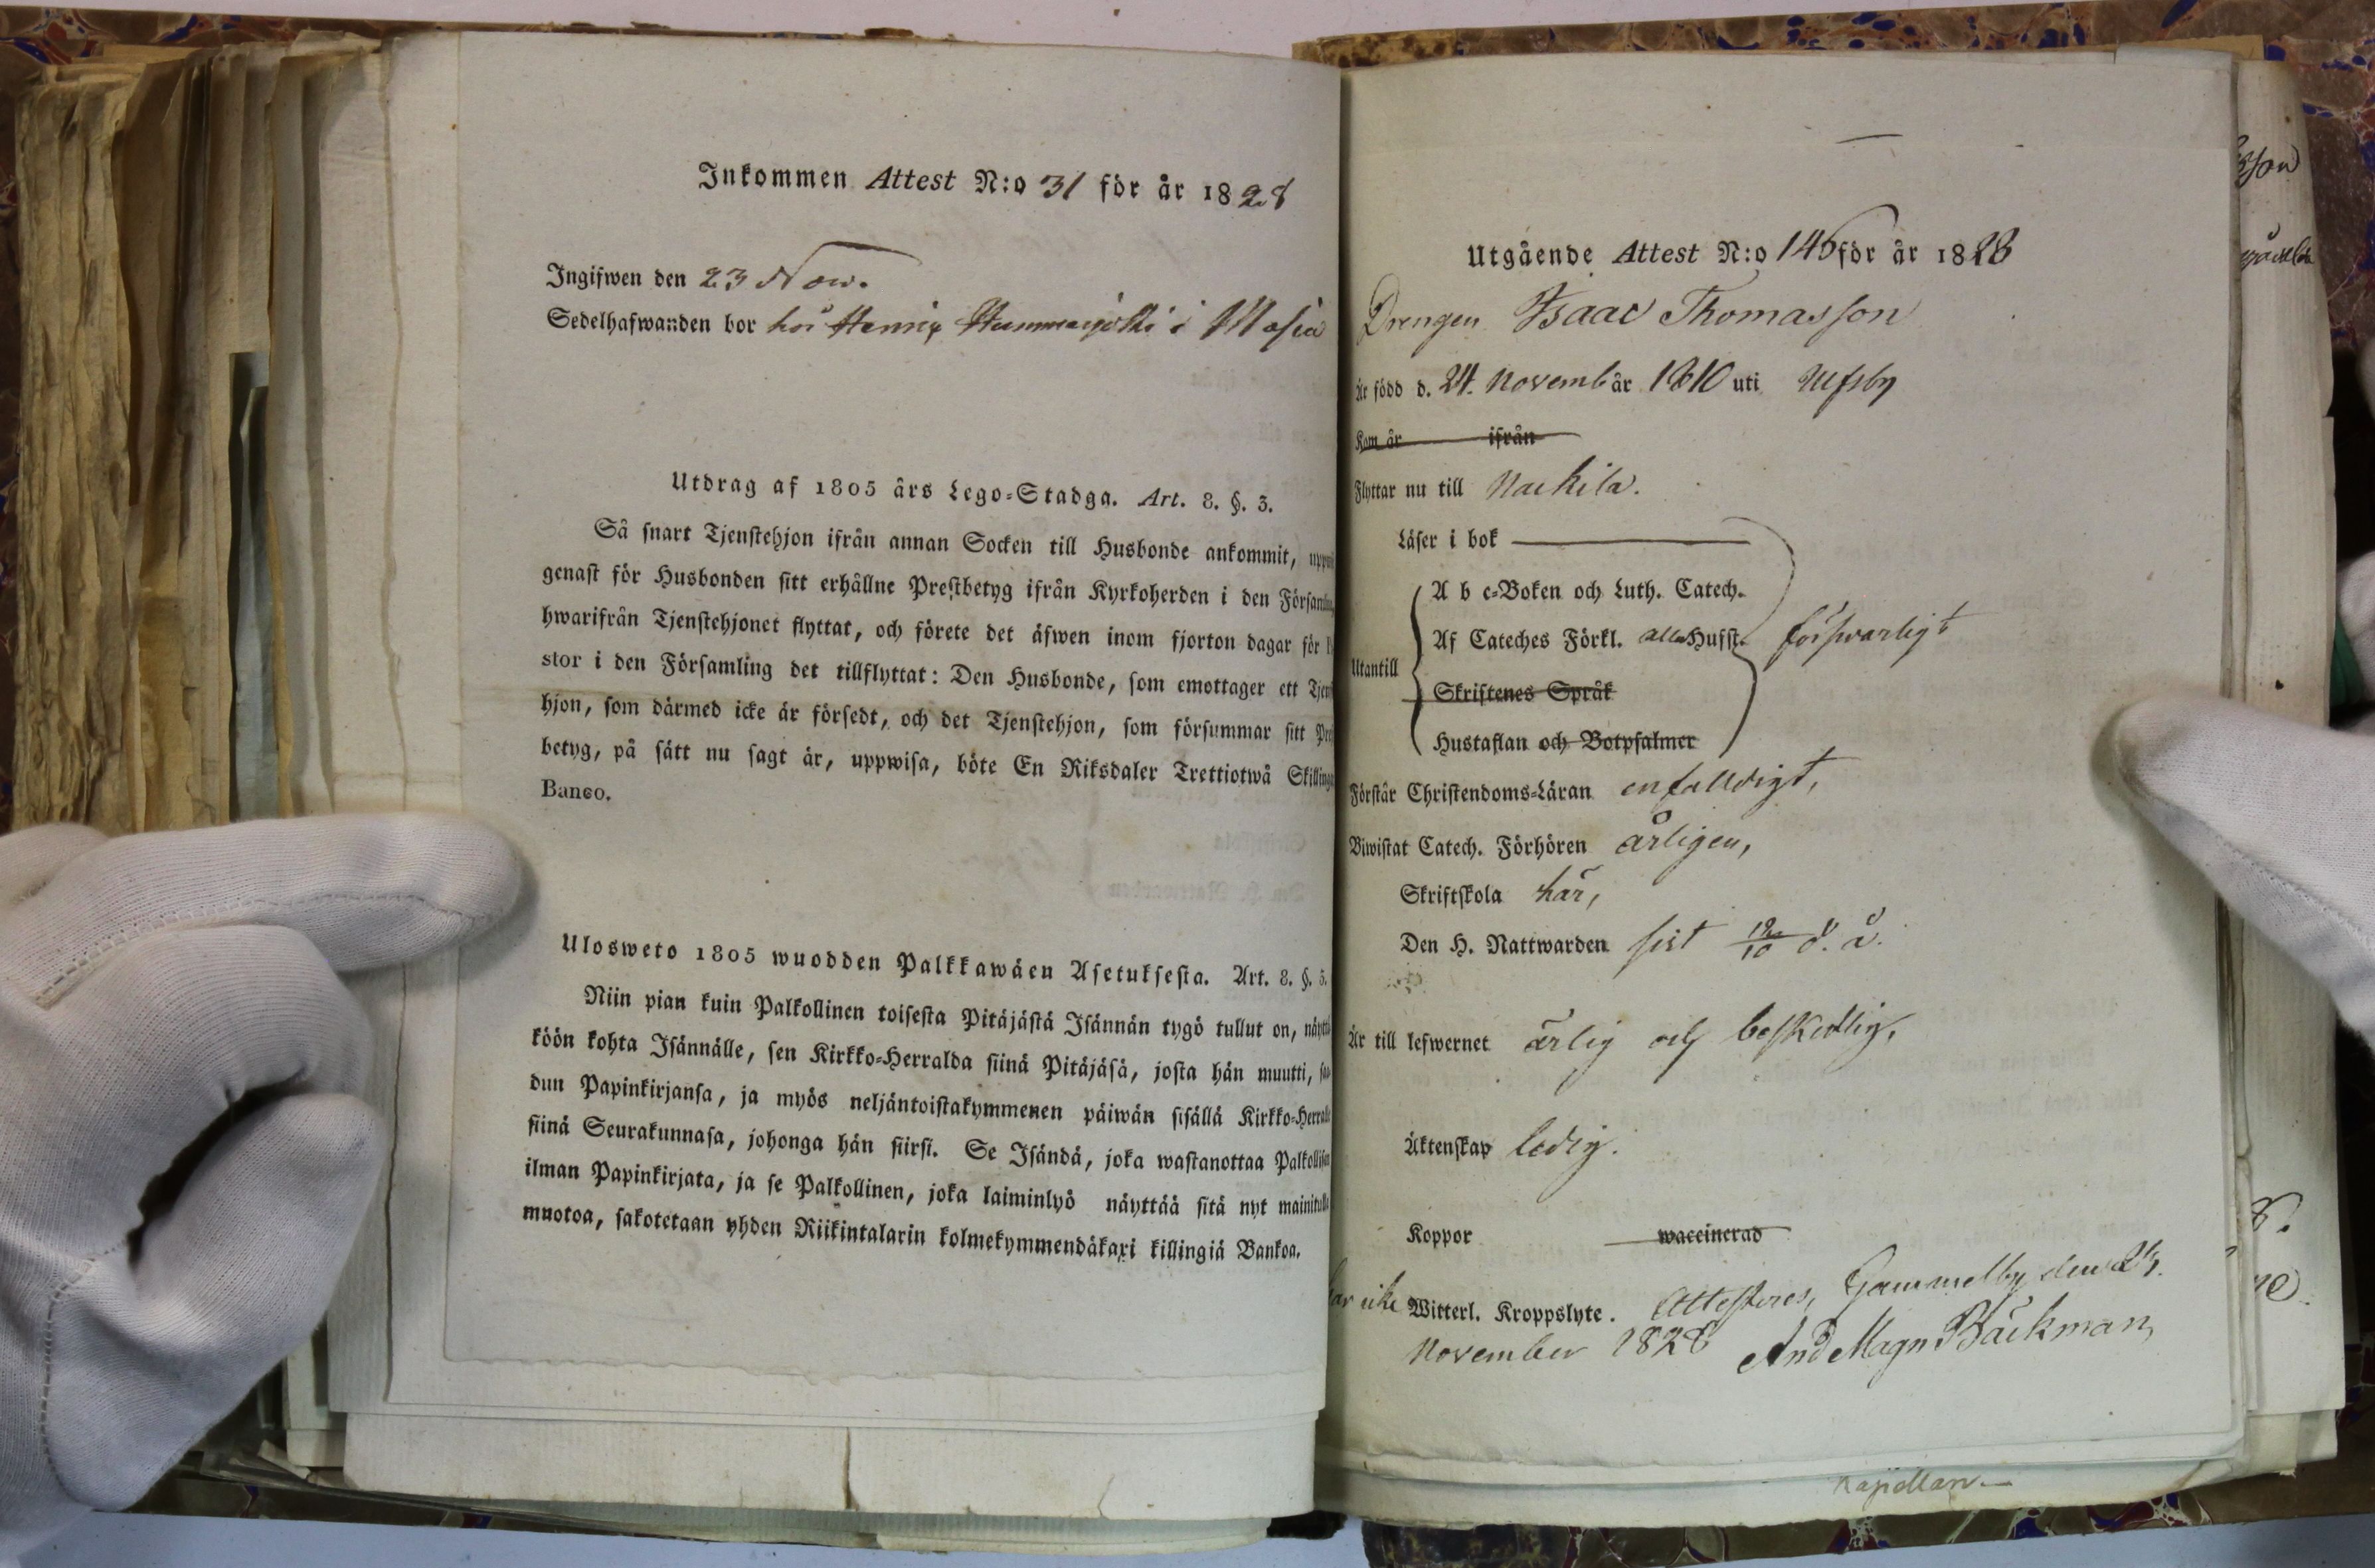 Inkommen Attest N:o 31 för år 1828
Ingifwen den 23 Nov.
Sedelhafwanden bor hos i Masia
Utdrag af 1805 års Lego-Stadga. Art. 8. §. 3.
Så snart Tjenstehjon ifrån annan Socken till Husbonde ankommit,
genast för Husbonden sitt erhållne Prestbetyg ifrån Kyrkoherden i den
hwarifrån Tjenstehjonet flyttat, och förete det äfwen inom fjorton dagar för
stor i den Församling det tillflyttat: Den Husbonde, som emottager ett
hjon, som därmed icke är försedt, och det Tjenstehjon, som försummar sitt
betyg, på sätt nu sagt är, uppwisa, böte En Riksdaler Trettiotwå
Banco.
Ulosweto 1805 wuodden Palkkawäen Asetuksesta. Art. 8. §. 3.
Niin pian kuin Palkollinen toisesta Pitäjästä Isännän tygö tullut on,
köön kohta Isännälle, sen Kirkko-Herralda siinä Pitäjäsä, josta hän muutti,
dun Papinkirjansa, ja myös neljäntoistakymmenen päiwän sisällä
siinä Seurakunnasa, johonga hän siirsi. Se Isändä, joka wastanottaa
ilman Papinkirjata, ja se Palkollinen, joka laiminlyö näyttää sitä nyt
muotoa, sakotetaan yhden Riikintalarin kolmekymmendäkaxi killingiä Bankoa.
Utgående Attest N:o 145 för år 1828
Drengen Isaac Thomasson
Är född d. 24. Novemb år 1810 uti Ulfsby
Kom år ifrån
Flyttar nu till Nackila.
Läser i bok
A b c-Boken och Luth. Catech.
Af Cateches Förkl. alla Hufst. försvarligt
Utantill
Skriftenes Språk
Hustaflan och Botpsalmer
Förstår Christendoms-Läran enfaldigt,
Biwistat Catech. Förhören årligen,
Skriftskola här,
Den H. Nattwarden sist 12/10 d. å.
Är till lefwernet ärlig och beskedlig,
Äktenskap ledig.
Koppor waccinerad
har icke Witterl. Kroppslyte. Attesteres, Gammelby den
November 1828 And Magn Bäckman,
Kapellan